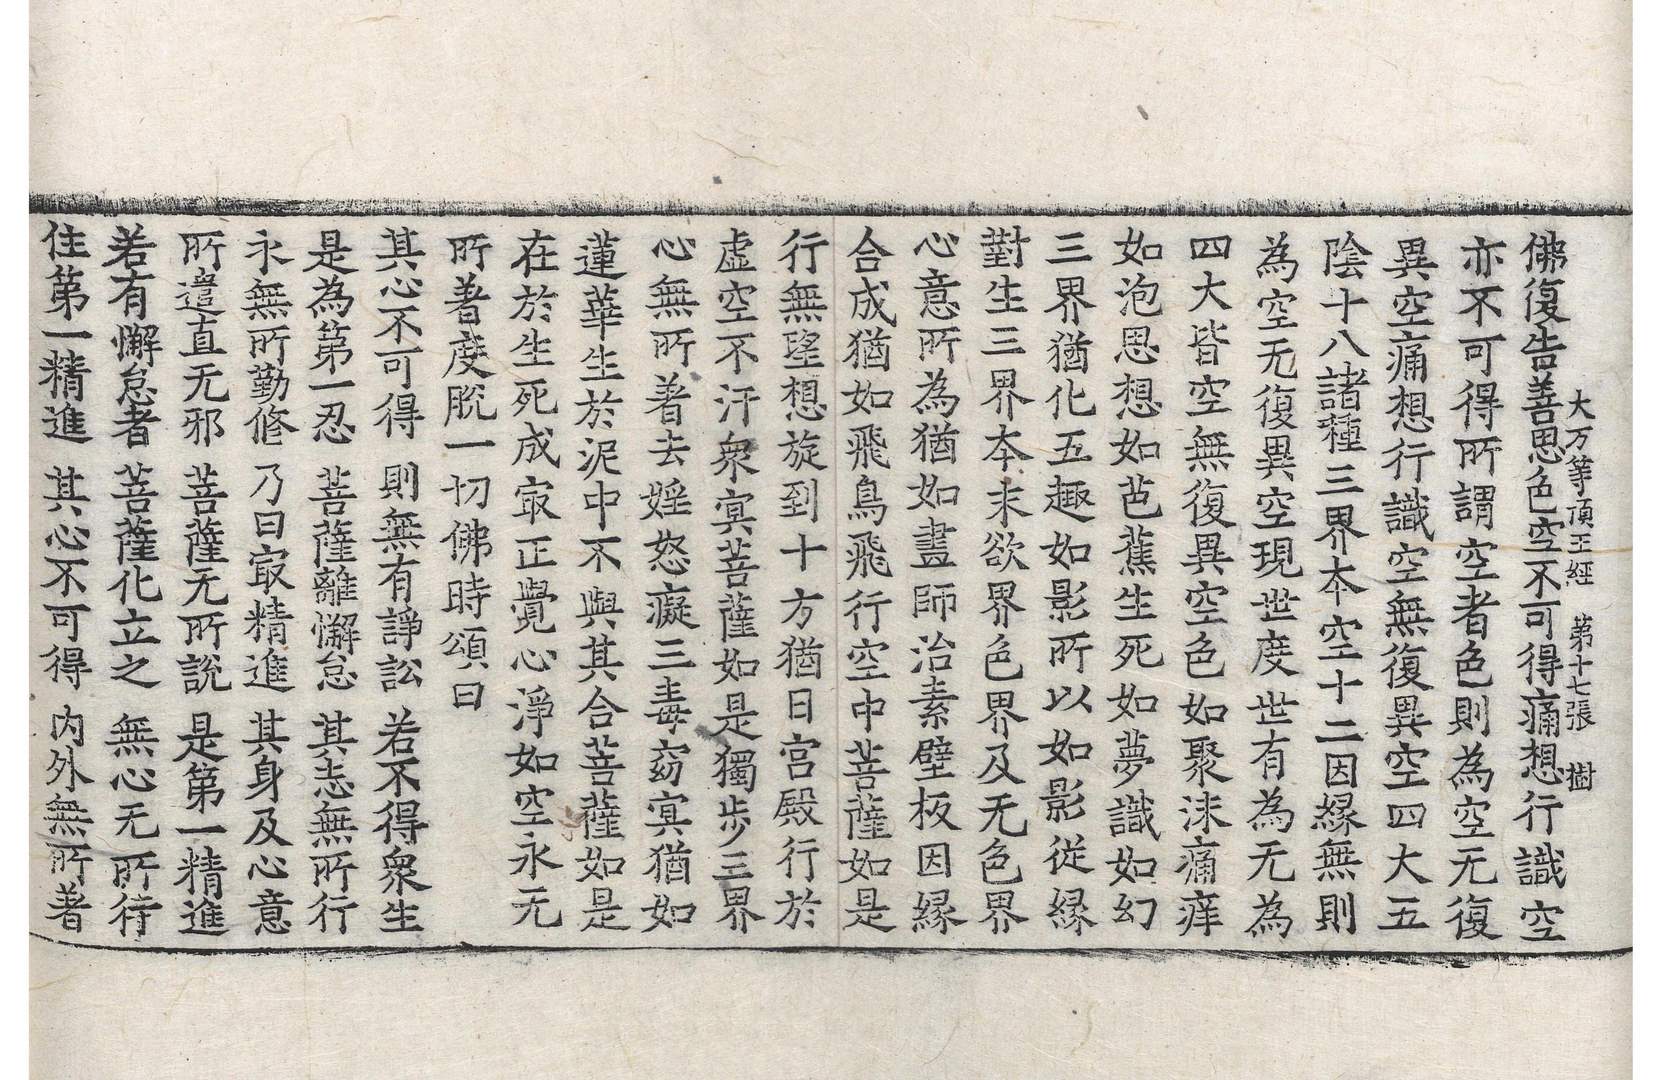 大方等頂王經　第十七張　樹
佛復告善思色空不可得痛想行識空
亦不可得所謂空者色則為空无復
異空痛想行識空無復異空四大五
陰十八諸種三界本空十二因緣無則
為空无復異空現世度世有為无為
四大皆空無復異空色如聚沫痛痒
如泡思想如芭蕉生死如夢識如幻
三界猶化五趣如影所以如影從緣
對生三界本末欲界色界及无色界
心意所為猶如畫師治素壁板因緣
合成猶如飛鳥飛行空中菩薩如是
行無望想旋到十方猶日宮殿行於
虛空不汙衆冥菩薩如是獨步三界
心無所著去婬怒癡三毒窈冥猶如
蓮華生於泥中不與其合菩薩如是
在於生死成㝡正覺心淨如空永无
所著度脫一切佛時頌曰
其心不可得　則無有諍訟　若不得衆生
是為第一忍　菩薩離懈怠　其志無所行
永無所勤修　乃曰㝡精進　其身及心意
所遣直无邪　菩薩无所說　是第一精進
若有懈怠者　菩薩化立之　無心无所待
住第一精進　其心不可得　內外無所著